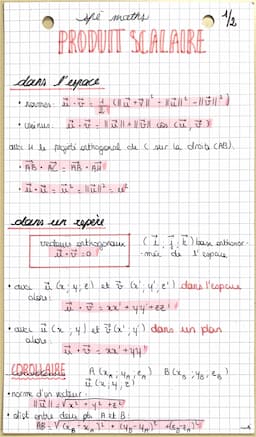 spé maths 1/2
PRODUIT SCALAIRE
dans l'espace
• normes: u⃗ · v⃗ = 1/2 (||u⃗ + v⃗||² - ||u⃗||² - ||v⃗||²)
• cosinus: u⃗ · v⃗ = ||u⃗|| × ||v⃗|| cos (u⃗, v⃗)
avec H le projeté orthogonal de C sur la droite (AB).
• AB⃗ · AC⃗ = AB⃗ · AH⃗
• u⃗ · u⃗ = u⃗² = ||u⃗||² = u²
dans un repère
vecteurs orthogonaux
u⃗ · v⃗ = 0
(i⃗, j⃗, k⃗) base orthonor-
-mée de l'espace
• avec u⃗ (x; y; z) et v⃗ (x'; y'; z') dans l'espace
alors:
u⃗ · v⃗ = xx' + yy' + zz'
• avec u⃗ (x; y) et v⃗ (x'; y') dans un plan
alors:
u⃗ · v⃗ = xx' + yy'
COROLLAIRE A (xA; yA; zA) B (xB; yB; zB)
u⃗ (x; y; z)
• norme d'un vecteur:
||u⃗|| = √x² + y² + z²
• dist entre deux pts A et B:
AB = √(xB - xA)² + (yB - yA)² + (zB - zA)²